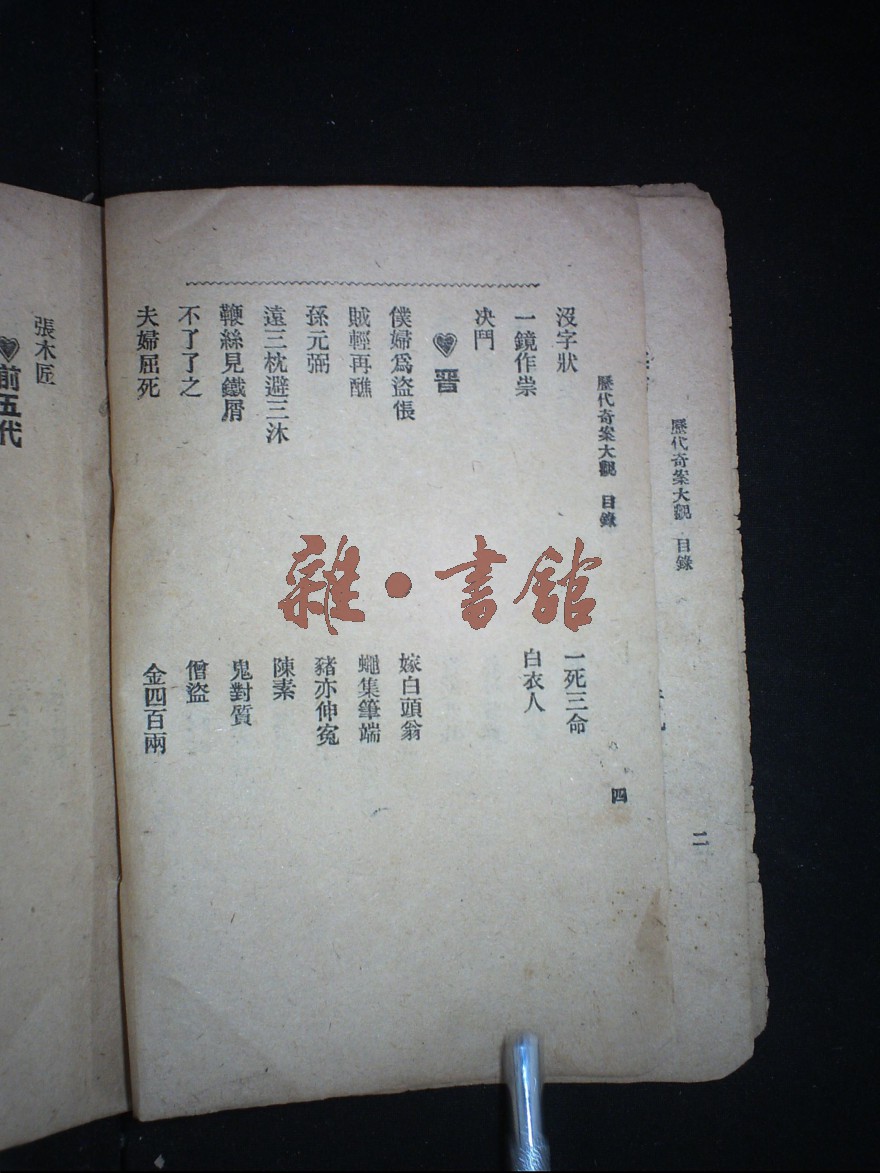 歷代奇案大觀 目錄
二
歷代奇案大觀 目錄
四
沒字狀
一死三命
一鏡作祟
白衣人
决鬥
晉
僕婦爲盜倀
嫁白頭翁
賊輕再醮
蠅集筆端
孫元弼
豬亦伸寃
遠三枕避三沐
陳素
鞭絲見鐵屑
鬼對質
不了了之
僧盜
夫婦屈死
金四百兩
張木匠
前五代
雜·書館